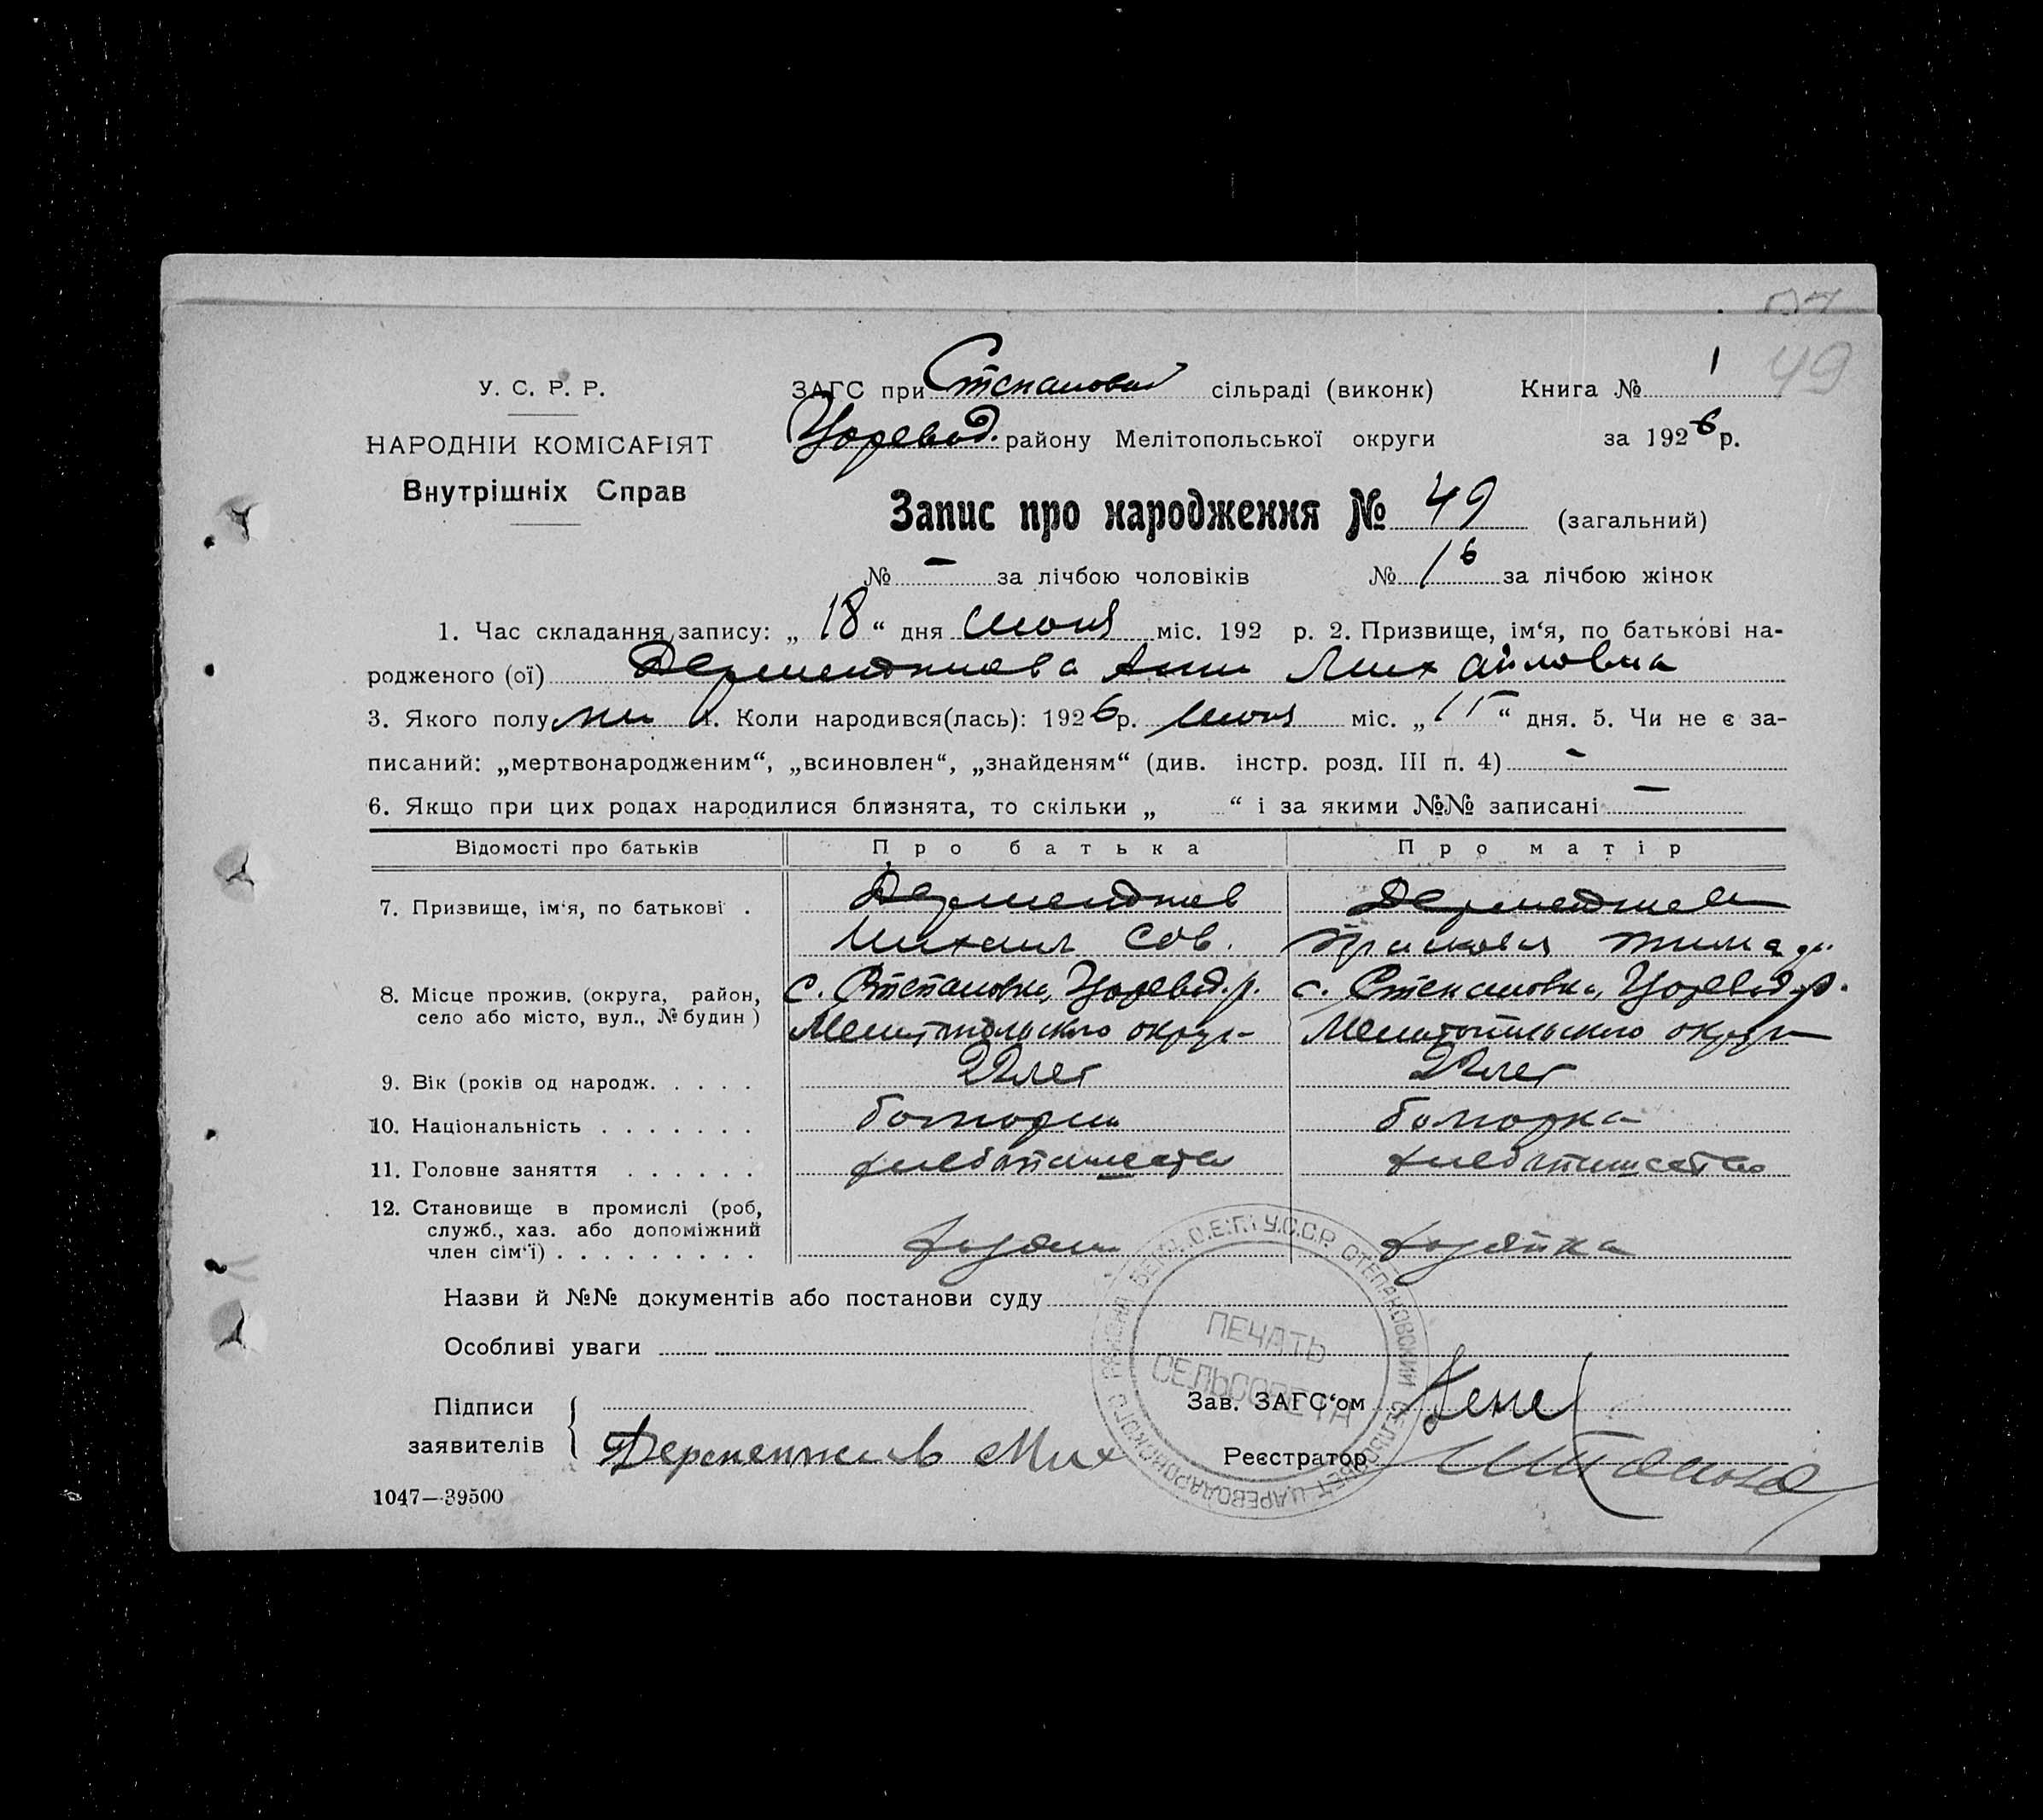 49
У. С. Р. Р.
ЗАГС при Степановій сільраді (виконк) Книга № 1
НАРОДНІЙ КОМІСАРІЯТ
Царевод. району Мелітопольської округи за 1926 р.
Внутрішніх Справ
Запис про народження № 49 (загальний)
№ — за лічбою чоловіків № 16 за лічбою жінок
1. Час складання запису: „ 18 “ дня июня міс. 192 р. 2. Призвище, ім‘я, по батькові на-
родженого (ої) Дерменджиева Анна Михайловна
3. Якого полу 4. Коли народився(лась): 1926 р. июня міс. „ “ дня. 5. Чи не є за-
писаний: „мертвонародженим“, „всиновлен“, „знайденям“ (див. інстр. розд. III п. 4) —
6. Якщо при цих родах народилися близнята, то скільки „ “ і за якими №№ записані —
Відомості про батьків Про батька Про матір
7. Призвище, ім‘я, по батькові . Дерменджиев Дерменджиева
Михаил Сав. Прасковья
8. Місце прожив. (округа, район, с. Степановка, Царевод. р. с. Степановка, Царевод. р.
село або місто, вул., № будин ) Мелитопольского округа Мелитопольского округа
9. Вік (років од народж. . . . . 22 лет 22 лет
10. Національність . . . . . . . болгарин болгарка
11. Головне заняття . . . . . . хлебопашество хлебопашество
12. Становище в промислі (роб,
служб., хаз. або допоміжний
член сім‘ї) . . . . . . . . . хозяин хозяйка
Назви й №№ документів або постанови суду
Особливі уваги
ПЕЧАТЬ
СЕЛЬСОВЕТА
У.С.С.Р. СТЕПАНОВСКИЙ СЕЛЬСОВЕТ ЦАРЕВОДАРОВСКОГО РАЙОНА
Підписи Зав. ЗАГС‘ом
заявителів Дерменжиев Мих Реєстратор
1047—39500